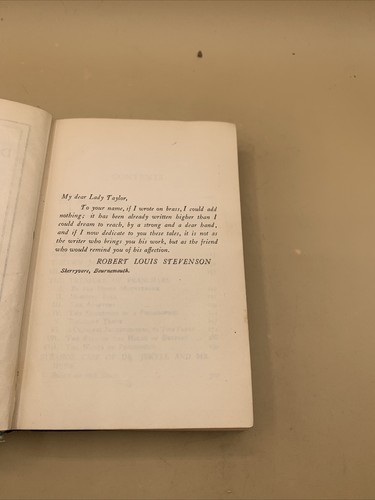 My dear Lady Taylor,
To your name, if I wrote on brass, I could add
nothing; it has been already written higher than I
could dream to reach, by a strong and a dear hand,
and if I now dedicate to you these tales, it is not as
the writer who brings you his work, but as the friend
who would remind you of his affection.
ROBERT LOUIS STEVENSON
Skerryvore, Bournemouth.